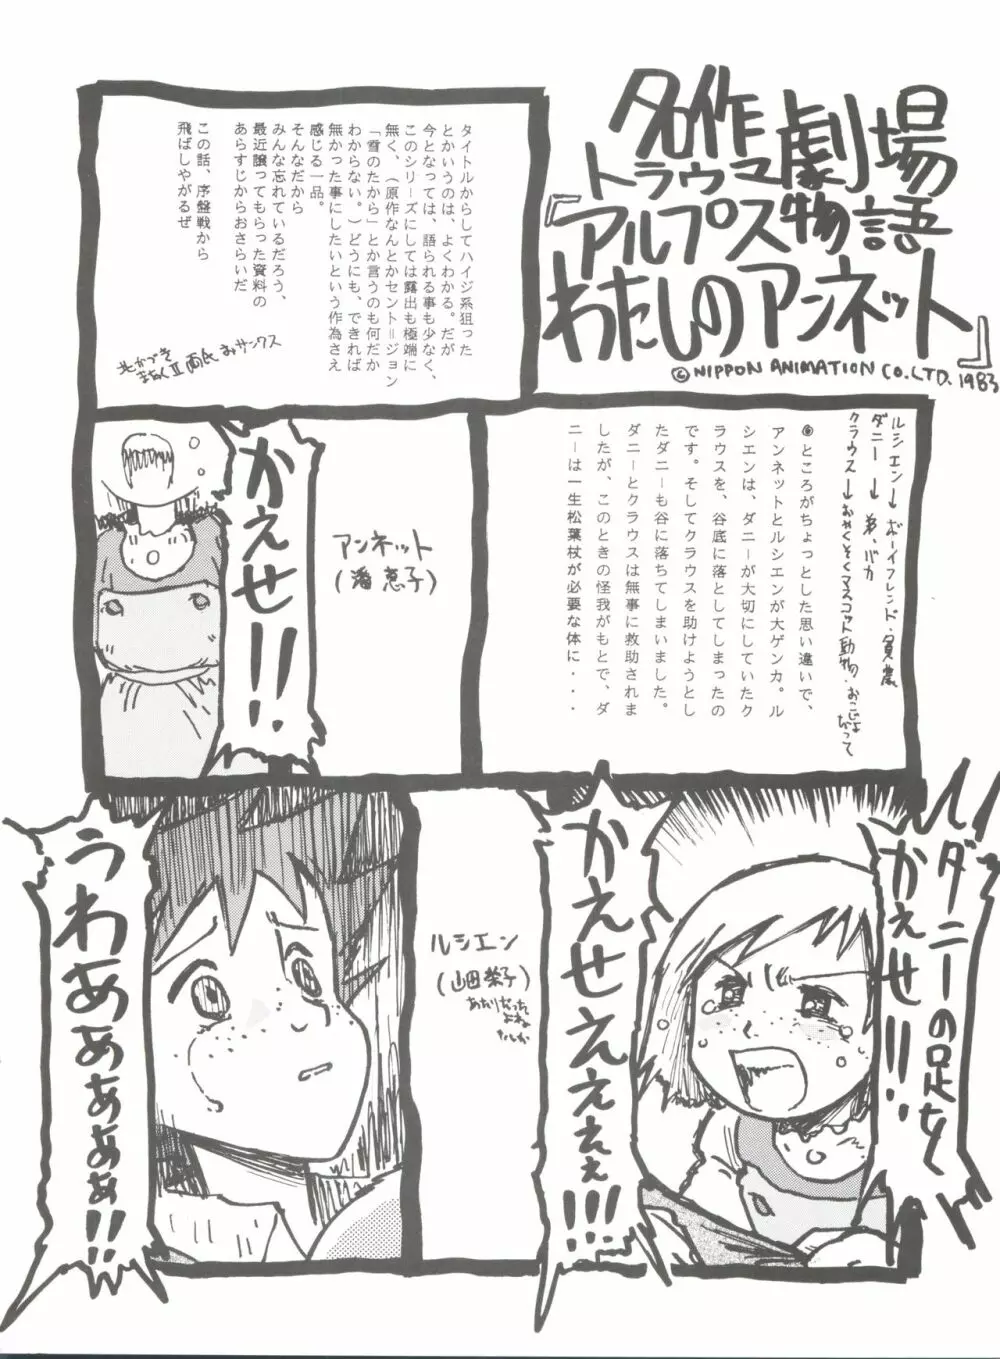 名作
トラウマ劇場
『アルプス物語
わたしのアンネット』
©NIPPON ANIMATION CO.LTD. 1983
タイトルからしてハイジ系狙った
とかいうのは、よくわかる。だが
今となっては、語られる事も少なく、
このシリーズにしては露出も極端に
無く、（原作なんとかセント＝ジョン
「雪のたから」とか言うのも何だか
わからない。）どうにも、できれば
無かった事にしたいという作為さえ
感じる一品。
そんなだから
みんな忘れているだろう、
最近譲ってもらった資料の
あらすじからおさらいだ
この話、序盤戦から
飛ばしやがるぜ
両氏
サンクス
ルシエン→ボーイフレンド・貧農
ダニー→弟、バカ
クラウス→おやくそくマスコット動物・おこじょ
だって
◉ところがちょっとした思い違いで、
アンネットとルシエンが大ゲンカ。ル
シエンは、ダニーが大切にしていたク
ラウスを、谷底に落としてしまったの
です。そしてクラウスを助けようとし
たダニーも谷に落ちてしまいました。
ダニーとクラウスは無事に救助されま
したが、このときの怪我がもとで、ダ
ニーは一生松葉杖が必要な体に・・・
アンネット
(潘 恵子)
かえせ!!
ダニーの足を
かえせ!!
かえせえええぇ!!!
ルシエン
(山田栄子)
あたりだった
よね
たしか
うわあぁぁぁぁ!!